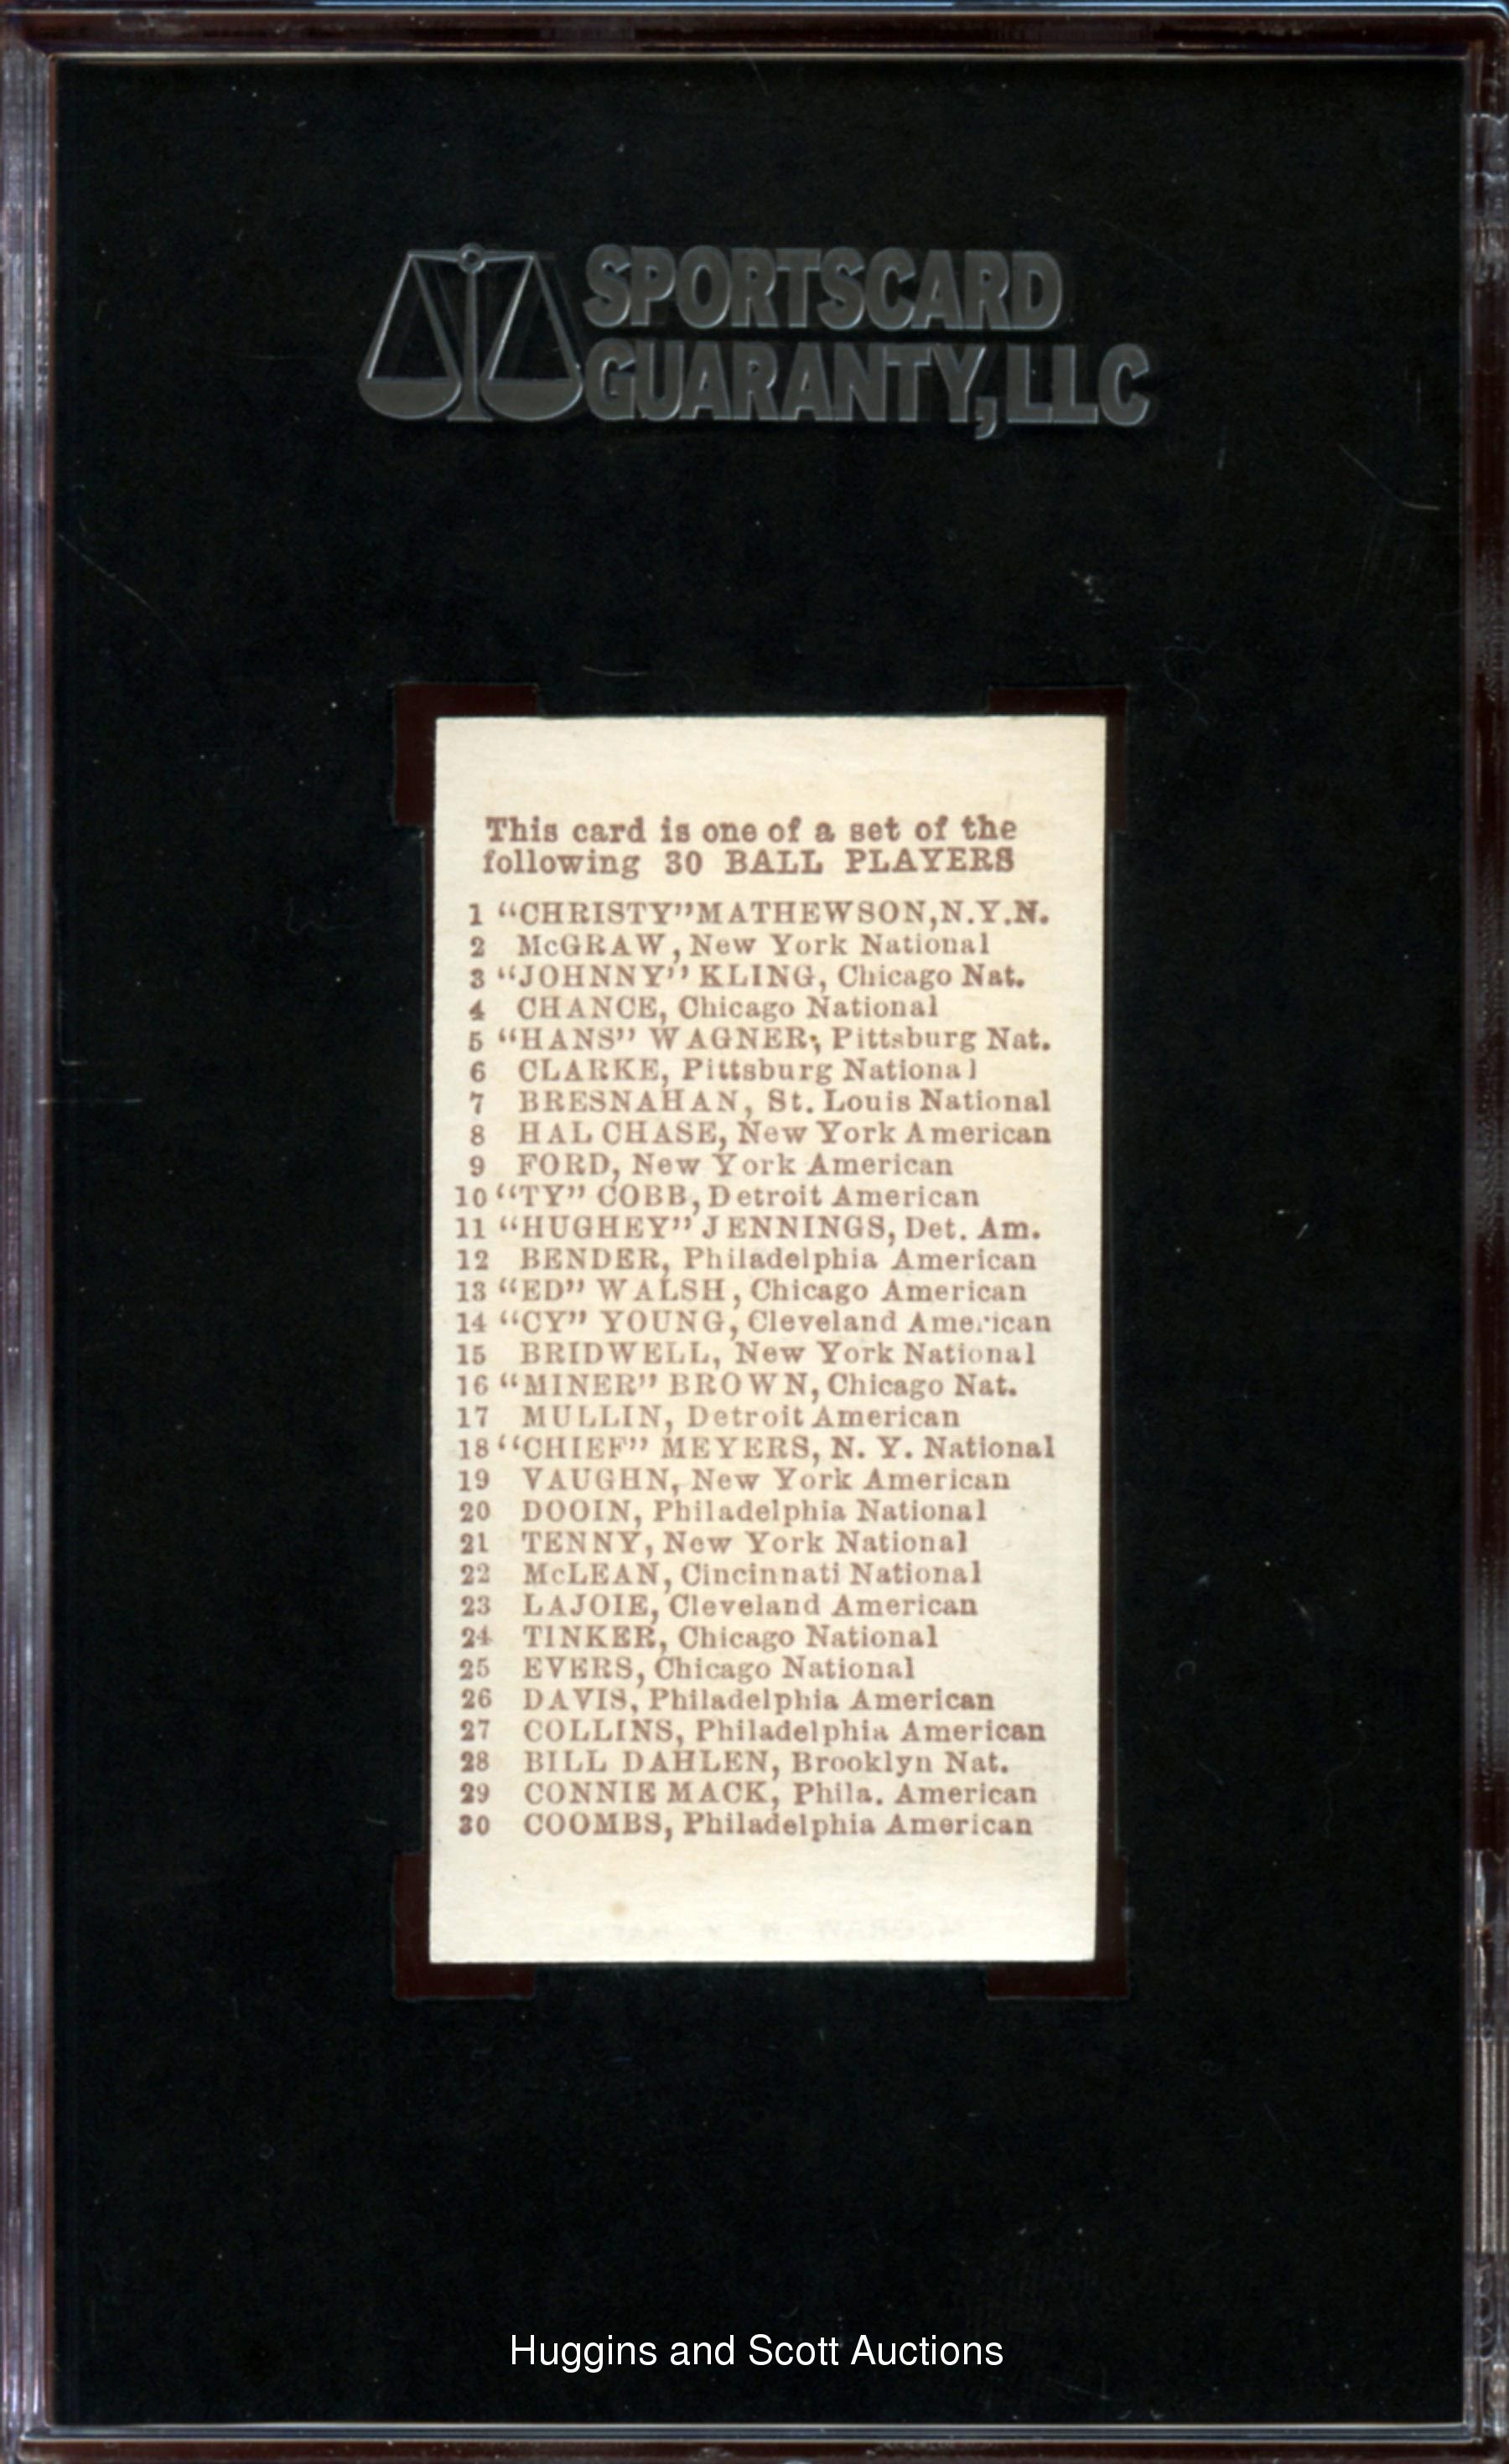 SPORTSCARD
GUARANTY, LLC
This card is one of a set of the
following 30 BALL PLAYERS
1 “CHRISTY” MATHEWSON, N.Y.N.
2 McGRAW, New York National
3 “JOHNNY” KLING, Chicago Nat.
4 CHANCE, Chicago National
5 “HANS” WAGNER, Pittsburg Nat.
6 CLARKE, Pittsburg National
7 BRESNAHAN, St. Louis National
8 HAL CHASE, New York American
9 FORD, New York American
10 “TY” COBB, Detroit American
11 “HUGHEY” JENNINGS, Det. Am.
12 BENDER, Philadelphia American
13 “ED” WALSH, Chicago American
14 “CY” YOUNG, Cleveland American
15 BRIDWELL, New York National
16 “MINER” BROWN, Chicago Nat.
17 MULLIN, Detroit American
18 “CHIEF” MEYERS, N. Y. National
19 VAUGHN, New York American
20 DOOIN, Philadelphia National
21 TENNY, New York National
22 McLEAN, Cincinnati National
23 LAJOIE, Cleveland American
24 TINKER, Chicago National
25 EVERS, Chicago National
26 DAVIS, Philadelphia American
27 COLLINS, Philadelphia American
28 BILL DAHLEN, Brooklyn Nat.
29 CONNIE MACK, Phila. American
30 COOMBS, Philadelphia American
Huggins and Scott Auctions